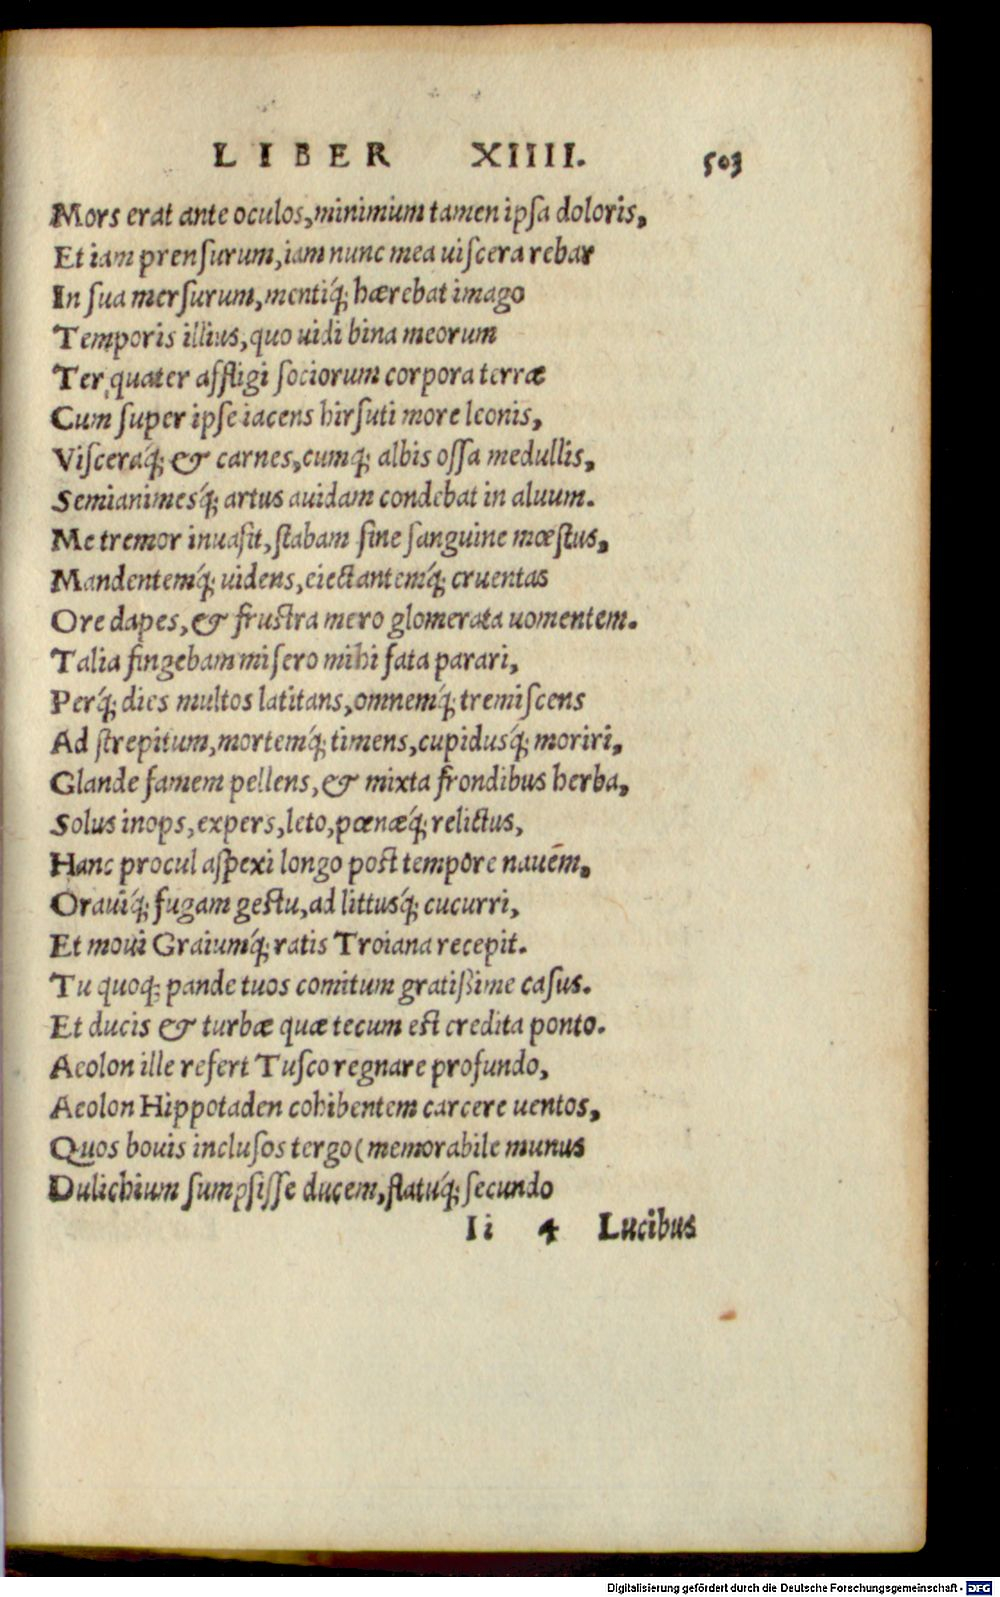 LIBER XIIII. 503
Mors erat ante oculos, minimium tamen ipſa doloris,
Et iam prenſurum, iam nunc mea uiſcera rebar
In ſua merſurum, mentiq́; hærebat imago
Temporis illius, quo uidi bina meorum
Ter quater affligi ſociorum corpora terræ
Cum ſuper ipſe iacens hirſuti more leonis,
Viſceraq́; & carnes, cumq; albis oſſa medullis,
Semianimesq́; artus auidam condebat in aluum.
Me tremor inuaſit, ſtabam ſine ſanguine mœſtus,
Mandentemq́; uidens, eiectantemq́; cruentas
Ore dapes, & fruſtra mero glomerata uomentem.
Talia fingebam miſero mihi fata parari,
Perq́; dies multos latitans, omnemq́; tremiſcens
Ad ſtrepitum, mortemq́; timens, cupidusq́; moriri,
Glande famem pellens, & mixta frondibus herba,
Solus inops, expers, leto, pœnæq́; relictus,
Hanc procul aſpexi longo poſt tempore nauēm,
Orauiq́; fugam geſtu, ad littusq́; cucurri,
Et moui Graiumq́; ratis Troiana recepit.
Tu quoq; pande tuos comitum gratiſsime caſus.
Et ducis & turbæ quæ tecum eſt credita ponto.
Aeolon ille refert Tuſco regnare profundo,
Aeolon Hippotaden cohibentem carcere uentos,
Quos bouis incluſos tergo (memorabile munus
Dulichium ſumpſiſſe ducem, flatuq́; ſecundo
Ii 4 Lucibus
Digitalisierung gefördert durch die Deutsche Forschungsgemeinschaft - DFG